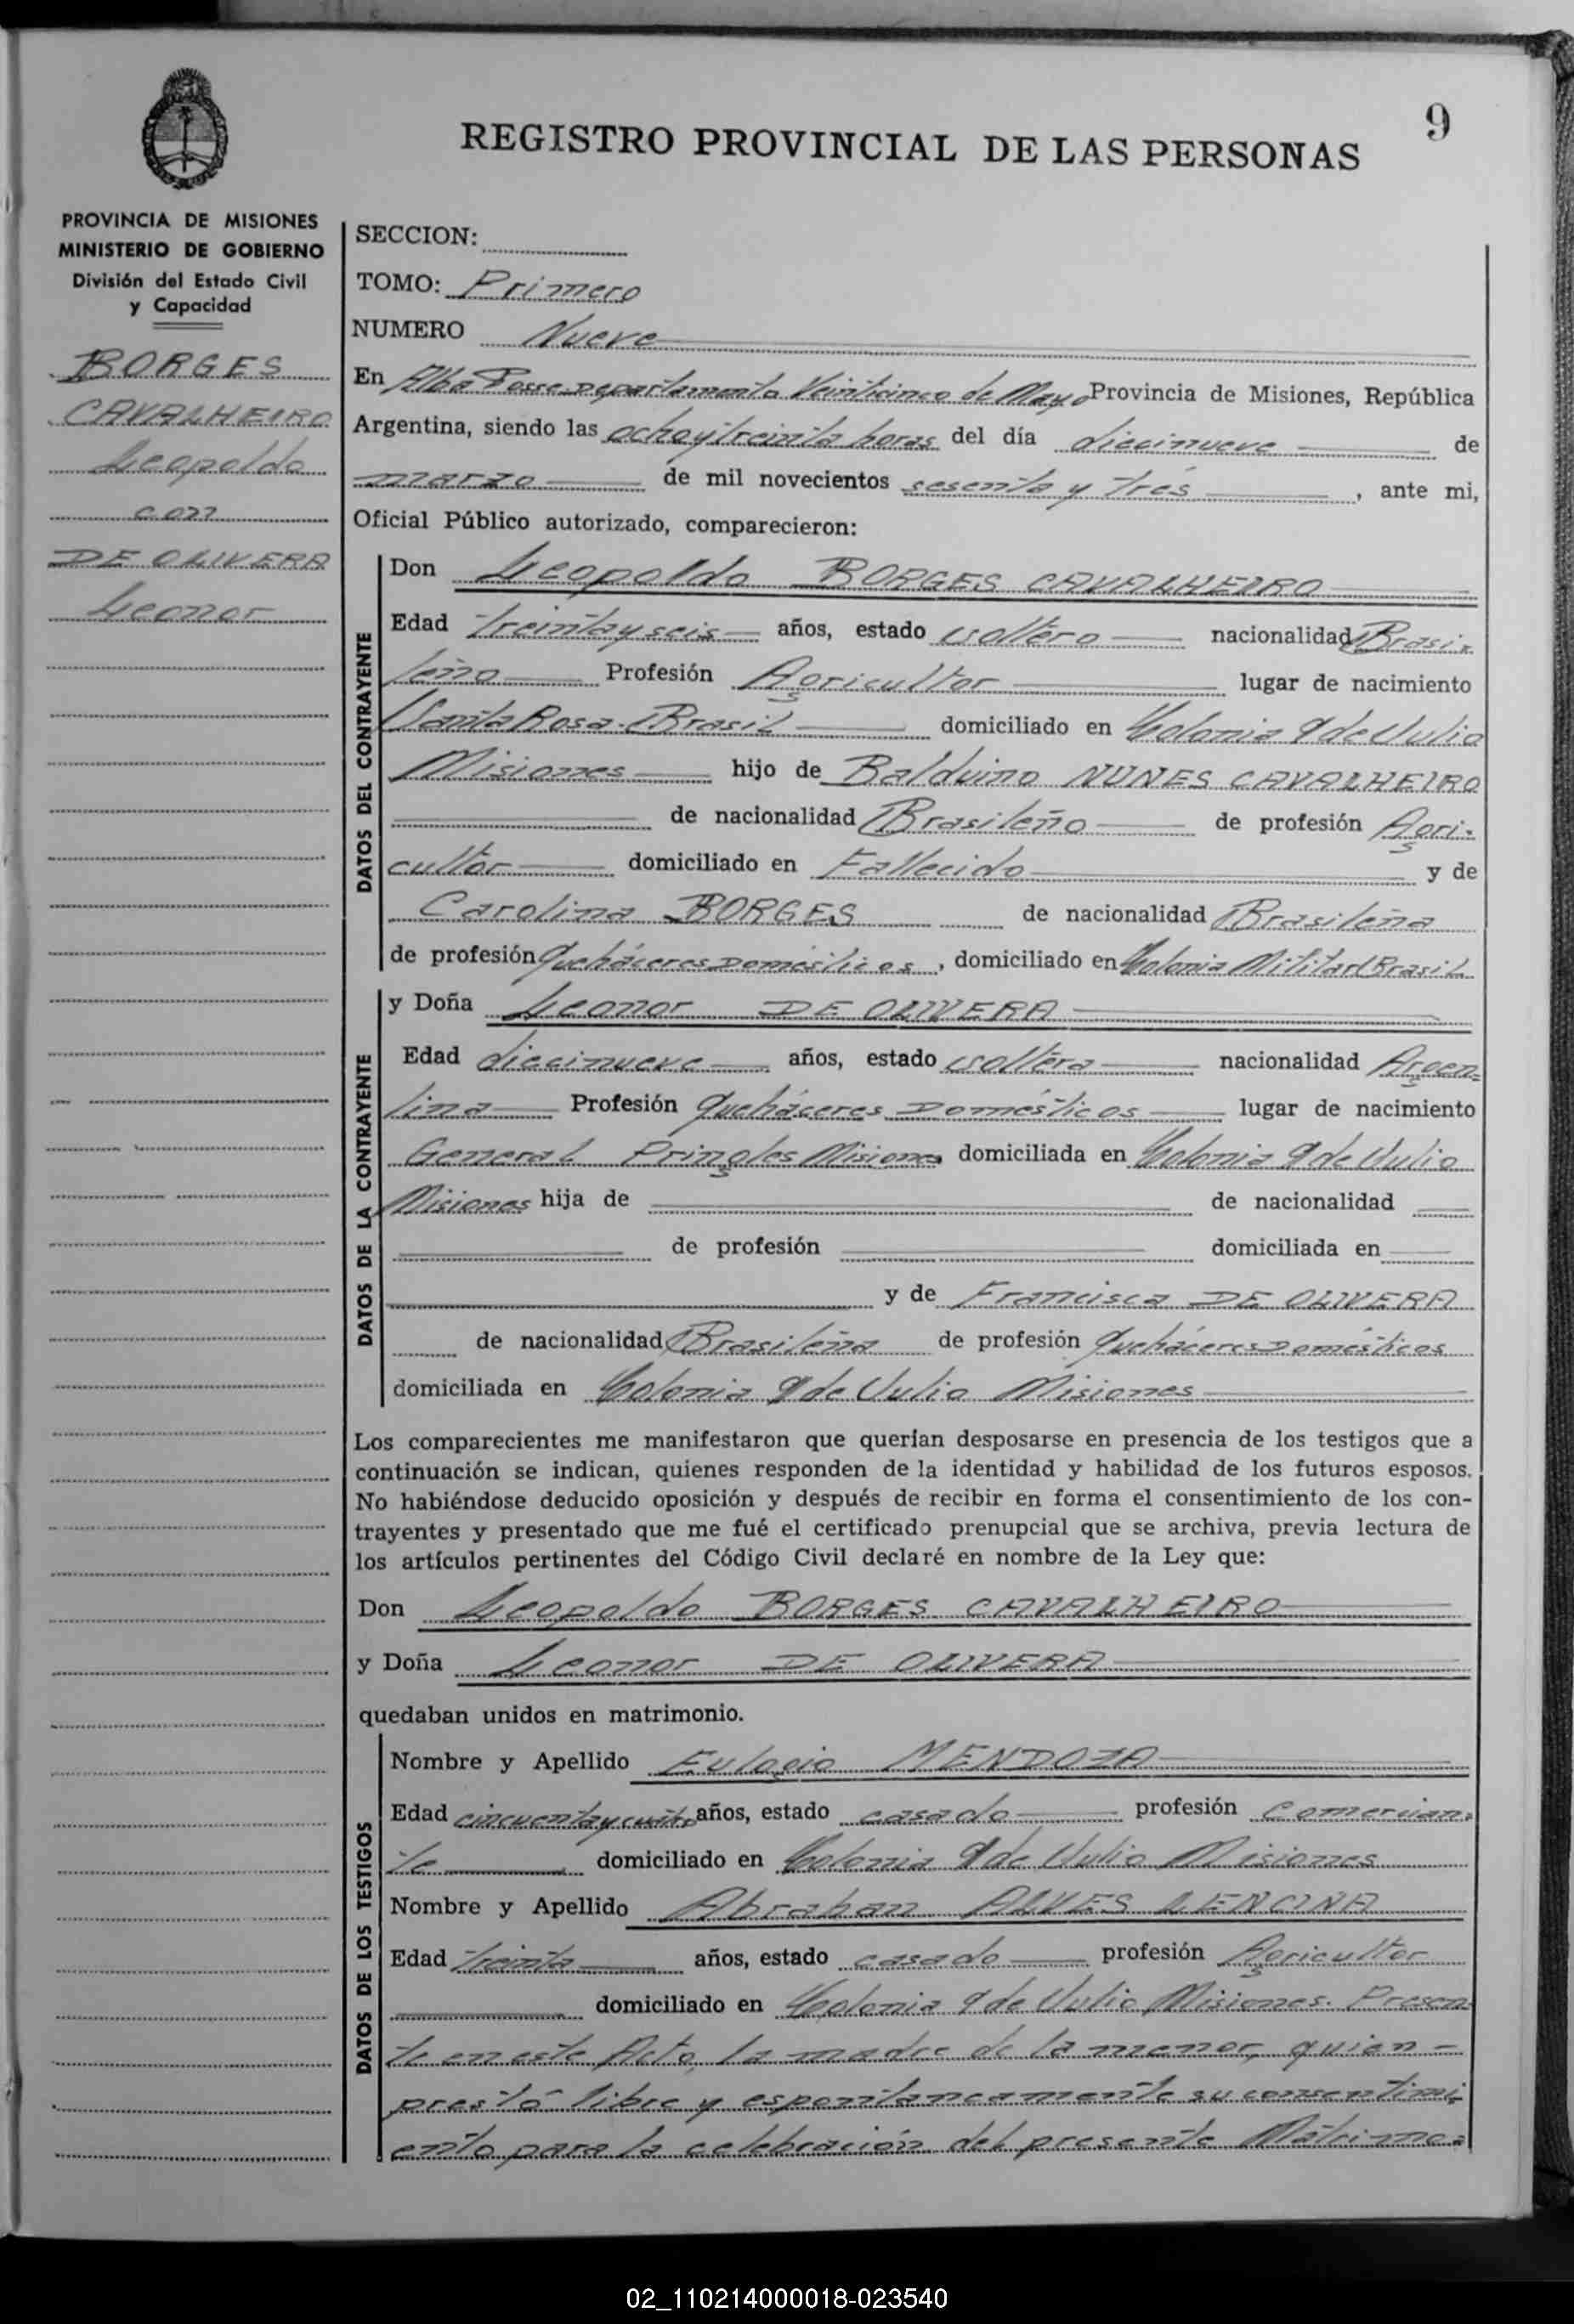 9
REGISTRO PROVINCIAL DE LAS PERSONAS
PROVINCIA DE MISIONES
MINISTERIO DE GOBIERNO
División del Estado Civil
y Capacidad
BORGES
CAVALHEIRO
Leopoldo
con
DE OLIVERA
Leonor
SECCION:
TOMO: Primero
NUMERO Nueve
En Alba Posse Departamento Veinticinco de Mayo Provincia de Misiones, República
Argentina, siendo las ocho y treinta horas del día diecinueve de
marzo de mil novecientos sesenta y tres, ante mi,
Oficial Público autorizado, comparecieron:
DATOS DEL CONTRAYENTE
Don Leopoldo BORGES CAVALHEIRO
Edad treinta y seis años, estado soltero nacionalidad Brasi-
leño Profesión Agricultor lugar de nacimiento
Santa Rosa-Brasil domiciliado en Colonia 9 de Julio
Misiones hijo de Balduino NUNES CAVALHEIRO
de nacionalidad Brasileño de profesión Agri-
cultor domiciliado en Fallecido y de
Carolina BORGES de nacionalidad Brasileña
de profesión Queháceres Domésticos, domiciliado en Colonia Militar Brasil
DATOS DE LA CONTRAYENTE
y Doña Leonor DE OLIVERA
Edad diecinueve años, estado soltera nacionalidad Argen-
tina Profesión Queháceres Domésticos lugar de nacimiento
General Pringles Misiones domiciliada en Colonia 9 de Julio
Misiones hija de de nacionalidad
de profesión domiciliada en
y de Francisca DE OLIVERA
de nacionalidad Brasileña de profesión Queháceres Domésticos
domiciliada en Colonia 9 de Julio Misiones
Los comparecientes me manifestaron que querían desposarse en presencia de los testigos que a
continuación se indican, quienes responden de la identidad y habilidad de los futuros esposos.
No habiéndose deducido oposición y después de recibir en forma el consentimiento de los con-
trayentes y presentado que me fué el certificado prenupcial que se archiva, previa lectura de
los artículos pertinentes del Código Civil declaré en nombre de la Ley que:
Don Leopoldo BORGES CAVALHEIRO
y Doña Leonor DE OLIVERA
quedaban unidos en matrimonio.
DATOS DE LOS TESTIGOS
Nombre y Apellido Eulogio MENDOZA
Edad cincuenta y cuatro años, estado casado profesión Comercian-
te domiciliado en Colonia 9 de Julio Misiones
Nombre y Apellido Abrahan ALVES LENCINA
Edad treinta años, estado casado profesión Agricultor
domiciliado en Colonia 9 de Julio Misiones. Presen-
te en este Acto, la madre de la menor, quien -
prestó libre y espontáneamente su consentimi-
ento para la celebración del presente Matrimo-
02_110214000018-023540